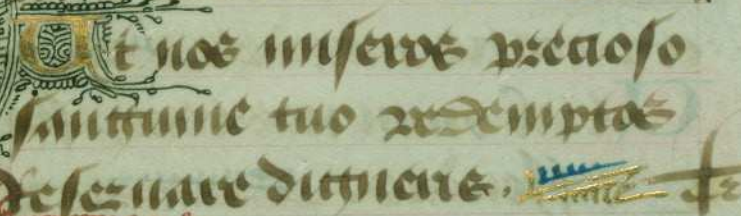 Ut nos miseros precioso
sanguine tuo redemptos
reseruare digneris.